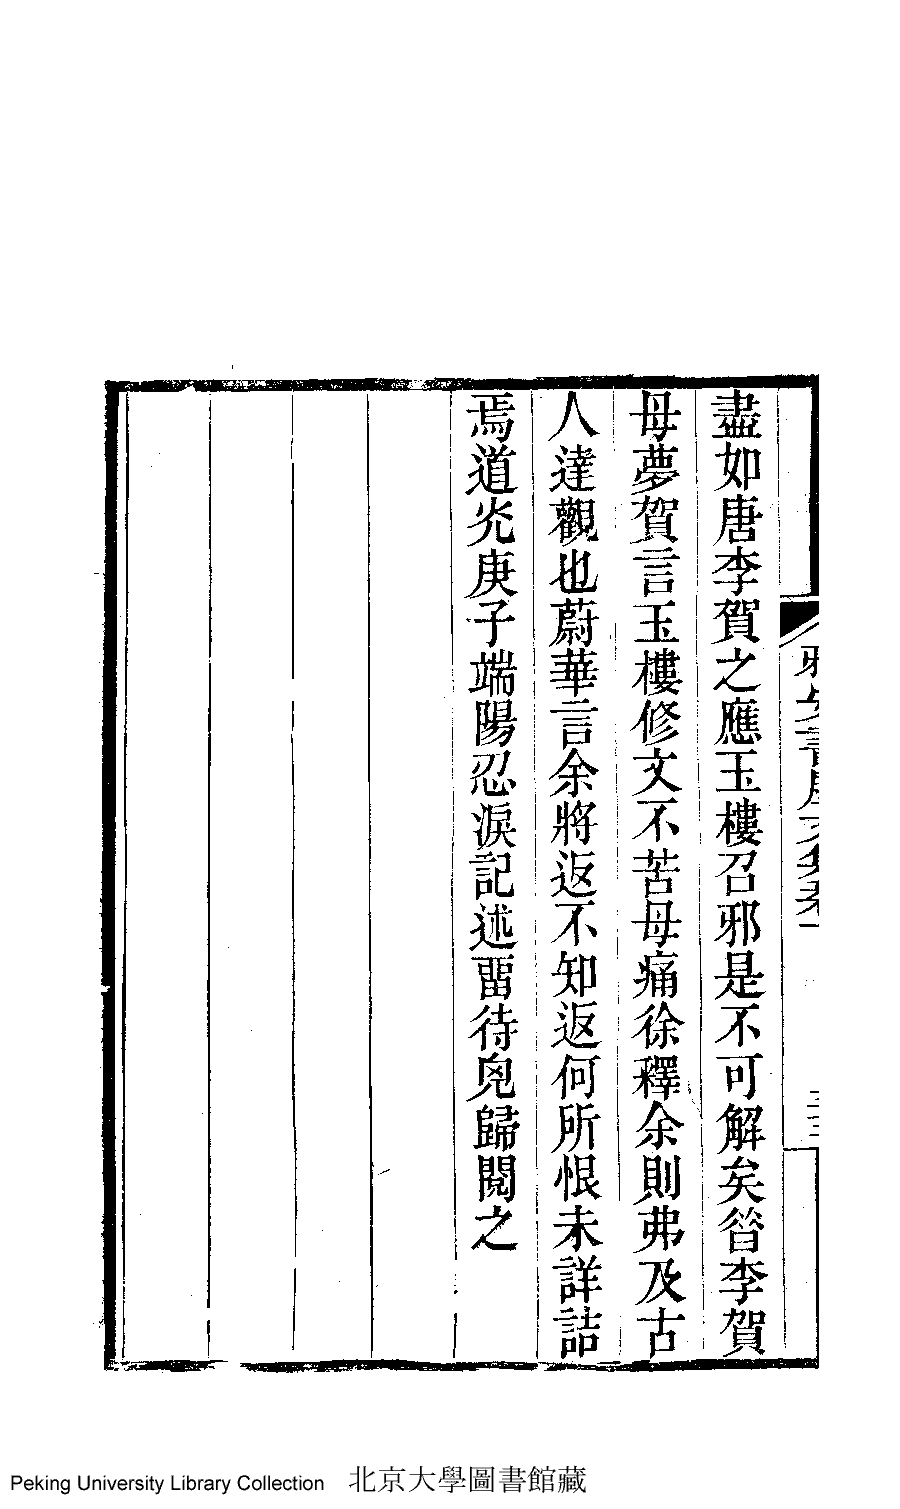 盡如唐李賀之應玉樓召邪是不可解矣昝李賀
母夢賀言玉樓修文不苦母痛徐釋余則弗及古
人達觀也蔚華言余將返不知返何所恨未詳詰
焉道光庚子端陽忍淚記述畱待皃歸閱之
Peking University Library Collection 北京大學圖書館藏